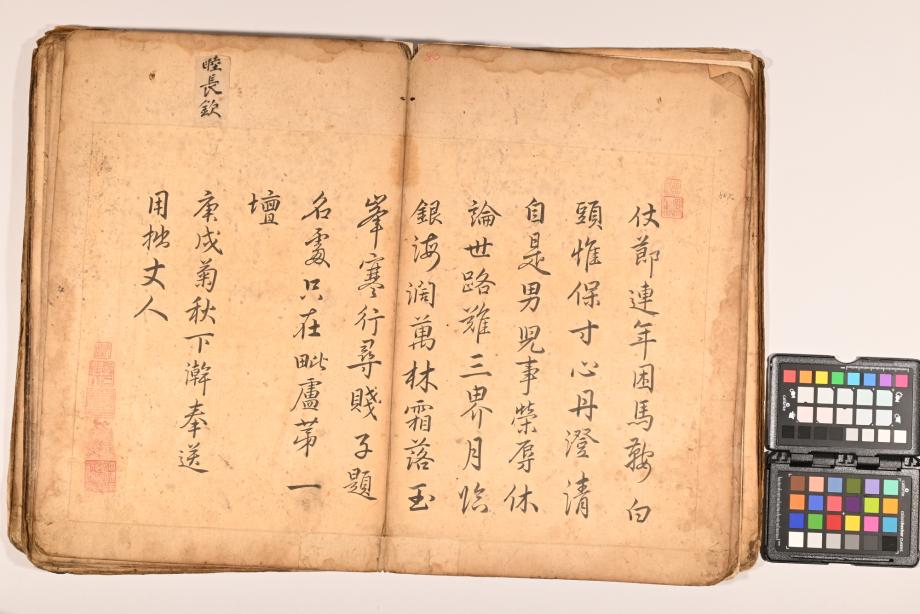 仗節連年困馬鞍白
頭惟保寸心丹澄清
自是男児事榮辱休
論世路難三界月臨
銀海澗萬林霜落玉
峯寒行尋賤子題
名處只在毗盧苐一
壇
庚戌菊秋下澣奉送
用拙丈人
睦長欽